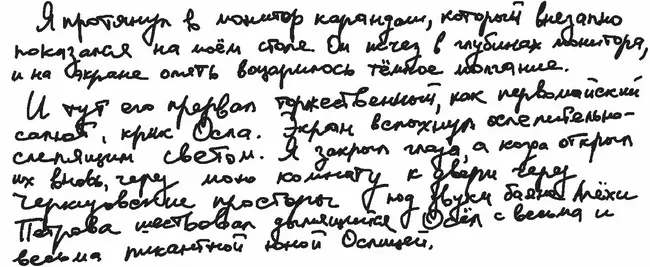 Я протянул в монитор карандаш, который внезапно
показался на моём столе. Он исчез в глубинах монитора,
и на экране опять воцарилось тёмное молчание.
И тут его прервал торжественный, как первомайский
салют, крик Осла. Экран вспыхнул ослепительно-
слепящим светом. Я закрыл глаза, а когда открыл
их вновь, через мою комнату к двери через
просторы под звуки баяна Алёхи
Петрова шествовал дымящийся Осёл с весьма и
весьма пикантной юной Ослицей.